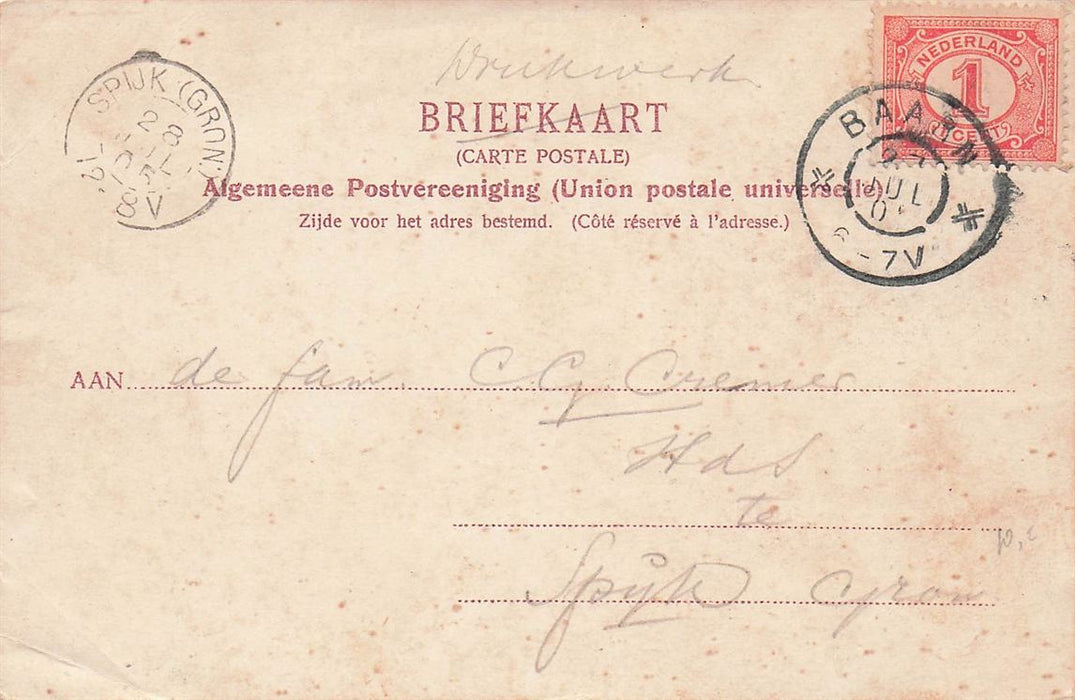 Drukwerk
BRIEFKAART
(CARTE POSTALE)
Algemeene Postvereeniging (Union postale universelle)
Zijde voor het adres bestemd. (Côté réservé à l'adresse.)
NEDERLAND
1
CENT
BAARN
JUL
-7V
SPIJK (GRON)
28
8V
AAN de fam. C G Cremer
HdS
te
Spijk Gron